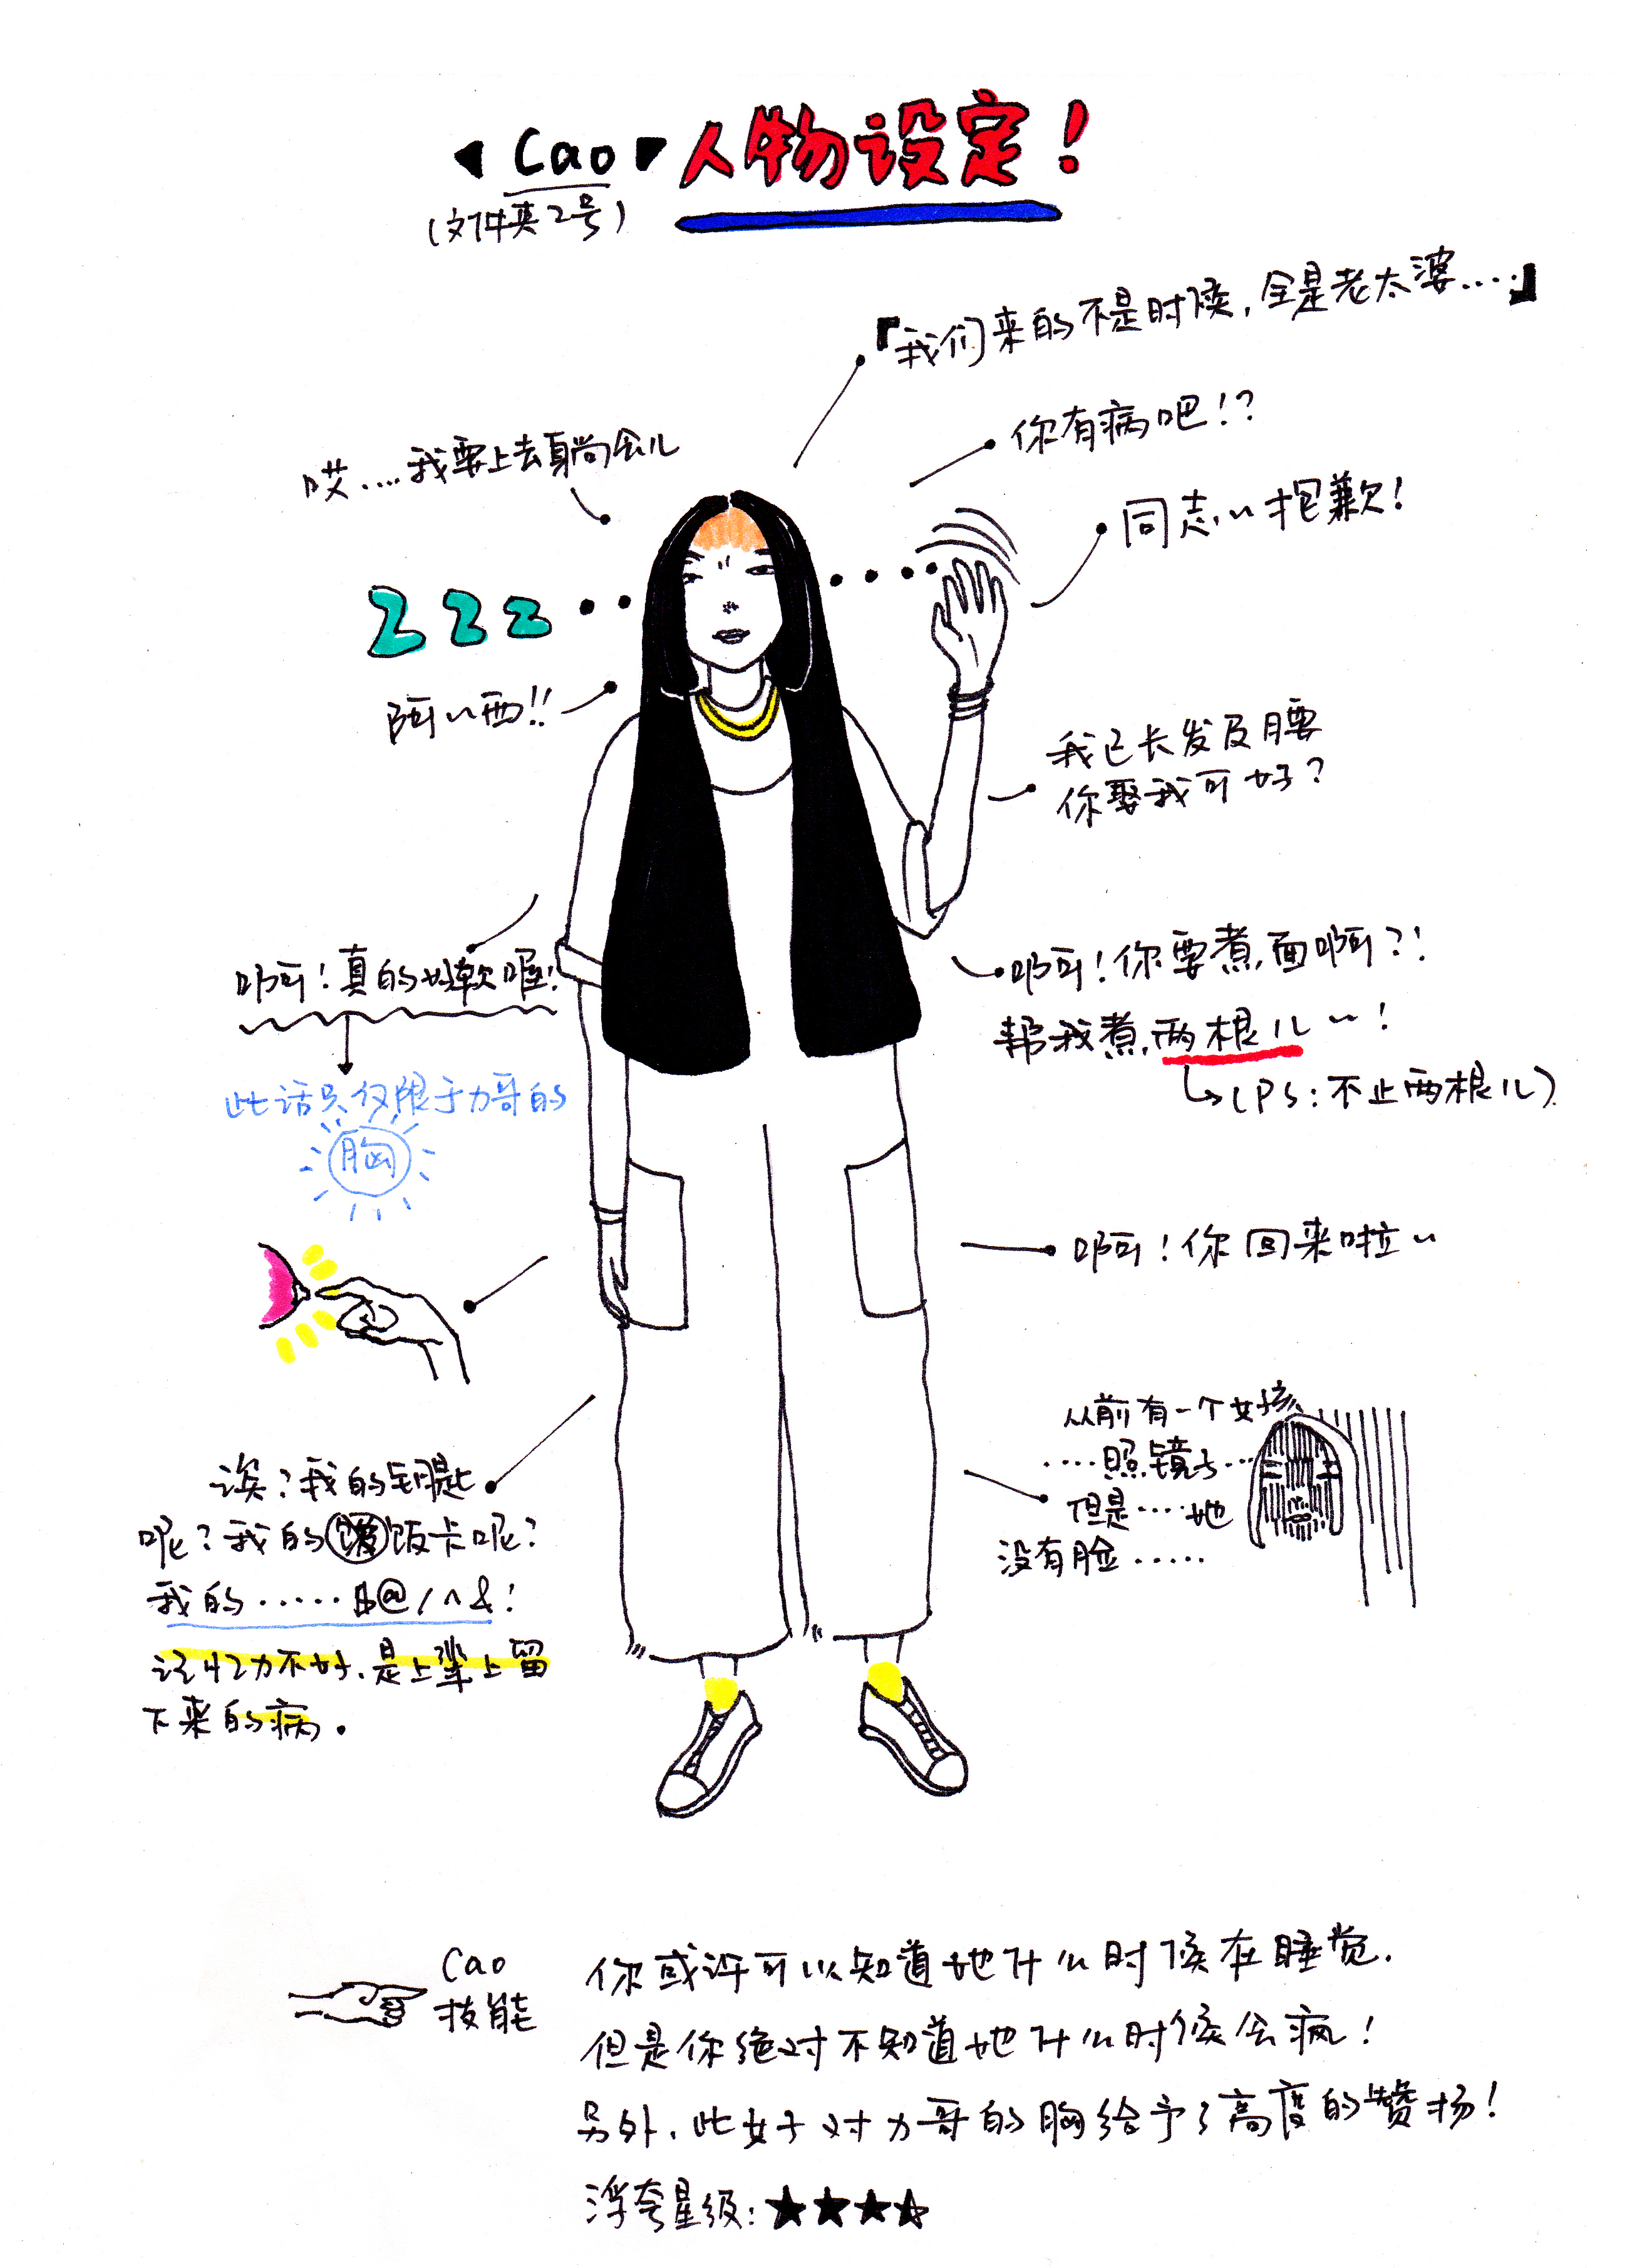 Cao 人物设定!
(文件夹2号)
『我们来的不是时候,全是老太婆....』
你有病吧!?
哎....我要上去躺会儿
同志~抱歉!
zzz
阿~西!!
我已长发及腰
你娶我可好?
啊!真的好软喔!
此话只仅限于力哥的
胸
啊!你要煮面啊?!
帮我煮两根儿~!
(PS:不止两根儿)
啊!你回来啦~
从前有一个女孩
....照镜子...
但是....她
没有脸.....
诶?我的钥匙
呢?我的饭卡呢?
我的.....$@/^&!
记忆力不好.是上辈上留
下来的病.
Cao
技能
你或许可以知道她什么时候在睡觉.
但是你绝对不知道她什么时候会疯!
另外.此女子对力哥的胸给予了高度的赞扬!
浮夸星级:★★★⯪